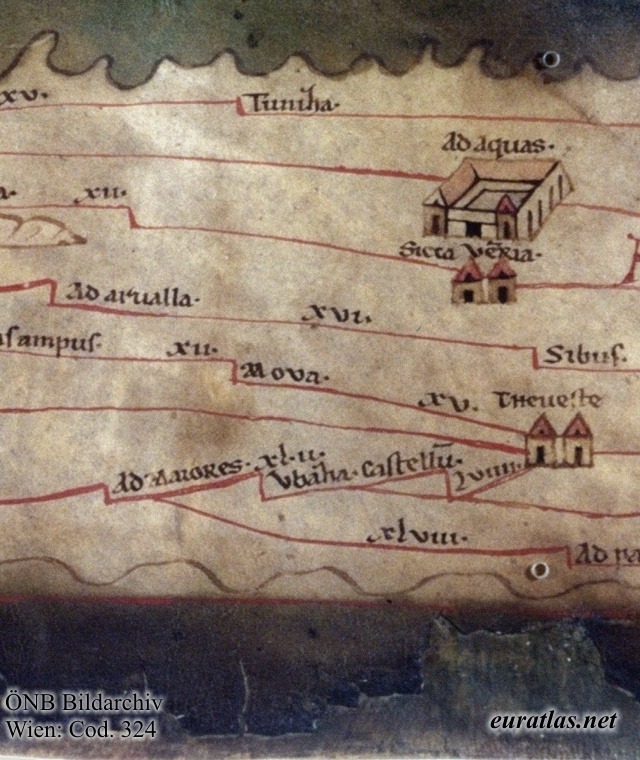 xv.
Tunisa.
Ad aquas.
xii.
Sicca Veria.
Ad atualla.
xvi.
sampus.
xii.
Mova.
Sibus.
xv.
Theueste
Ad Maiores.
xl.ii.
Ubaza Castellū.
xlviii.
Ad
ÖNB Bildarchiv
Wien: Cod. 324
euratlas.net